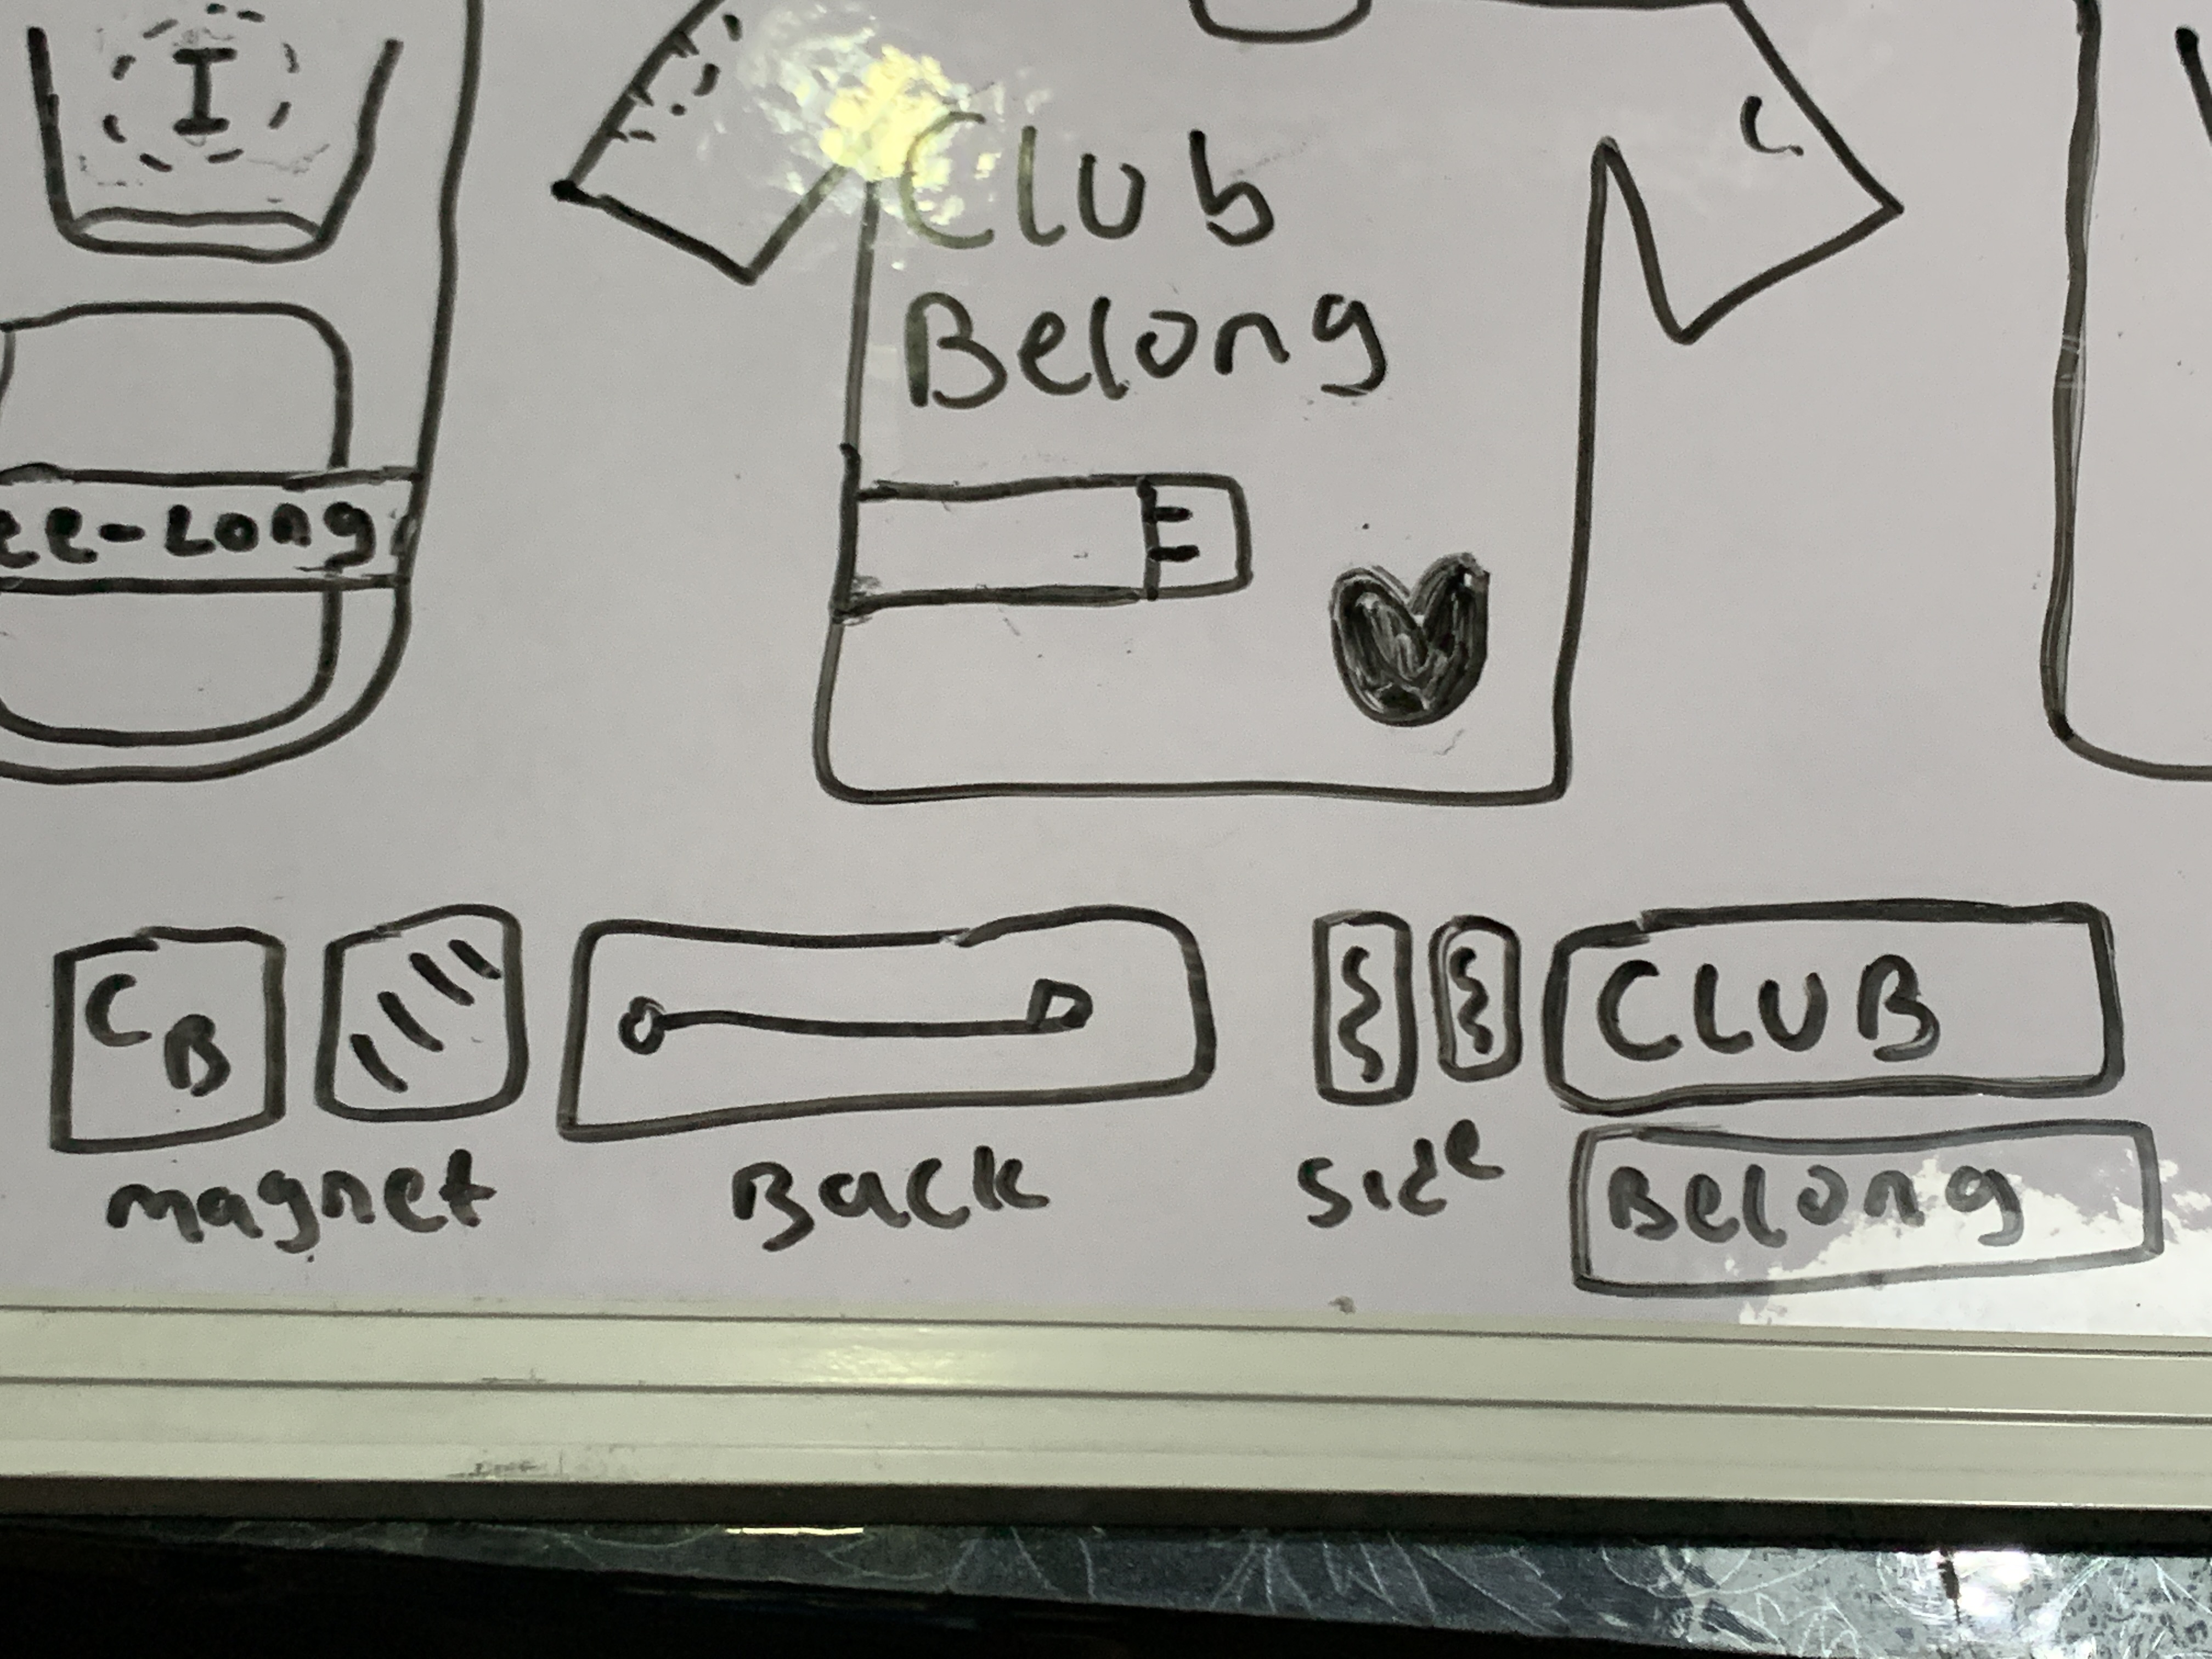 I
ee-Long
Club
Belong
CB
magnet
Back
Size
CLUB
Belong